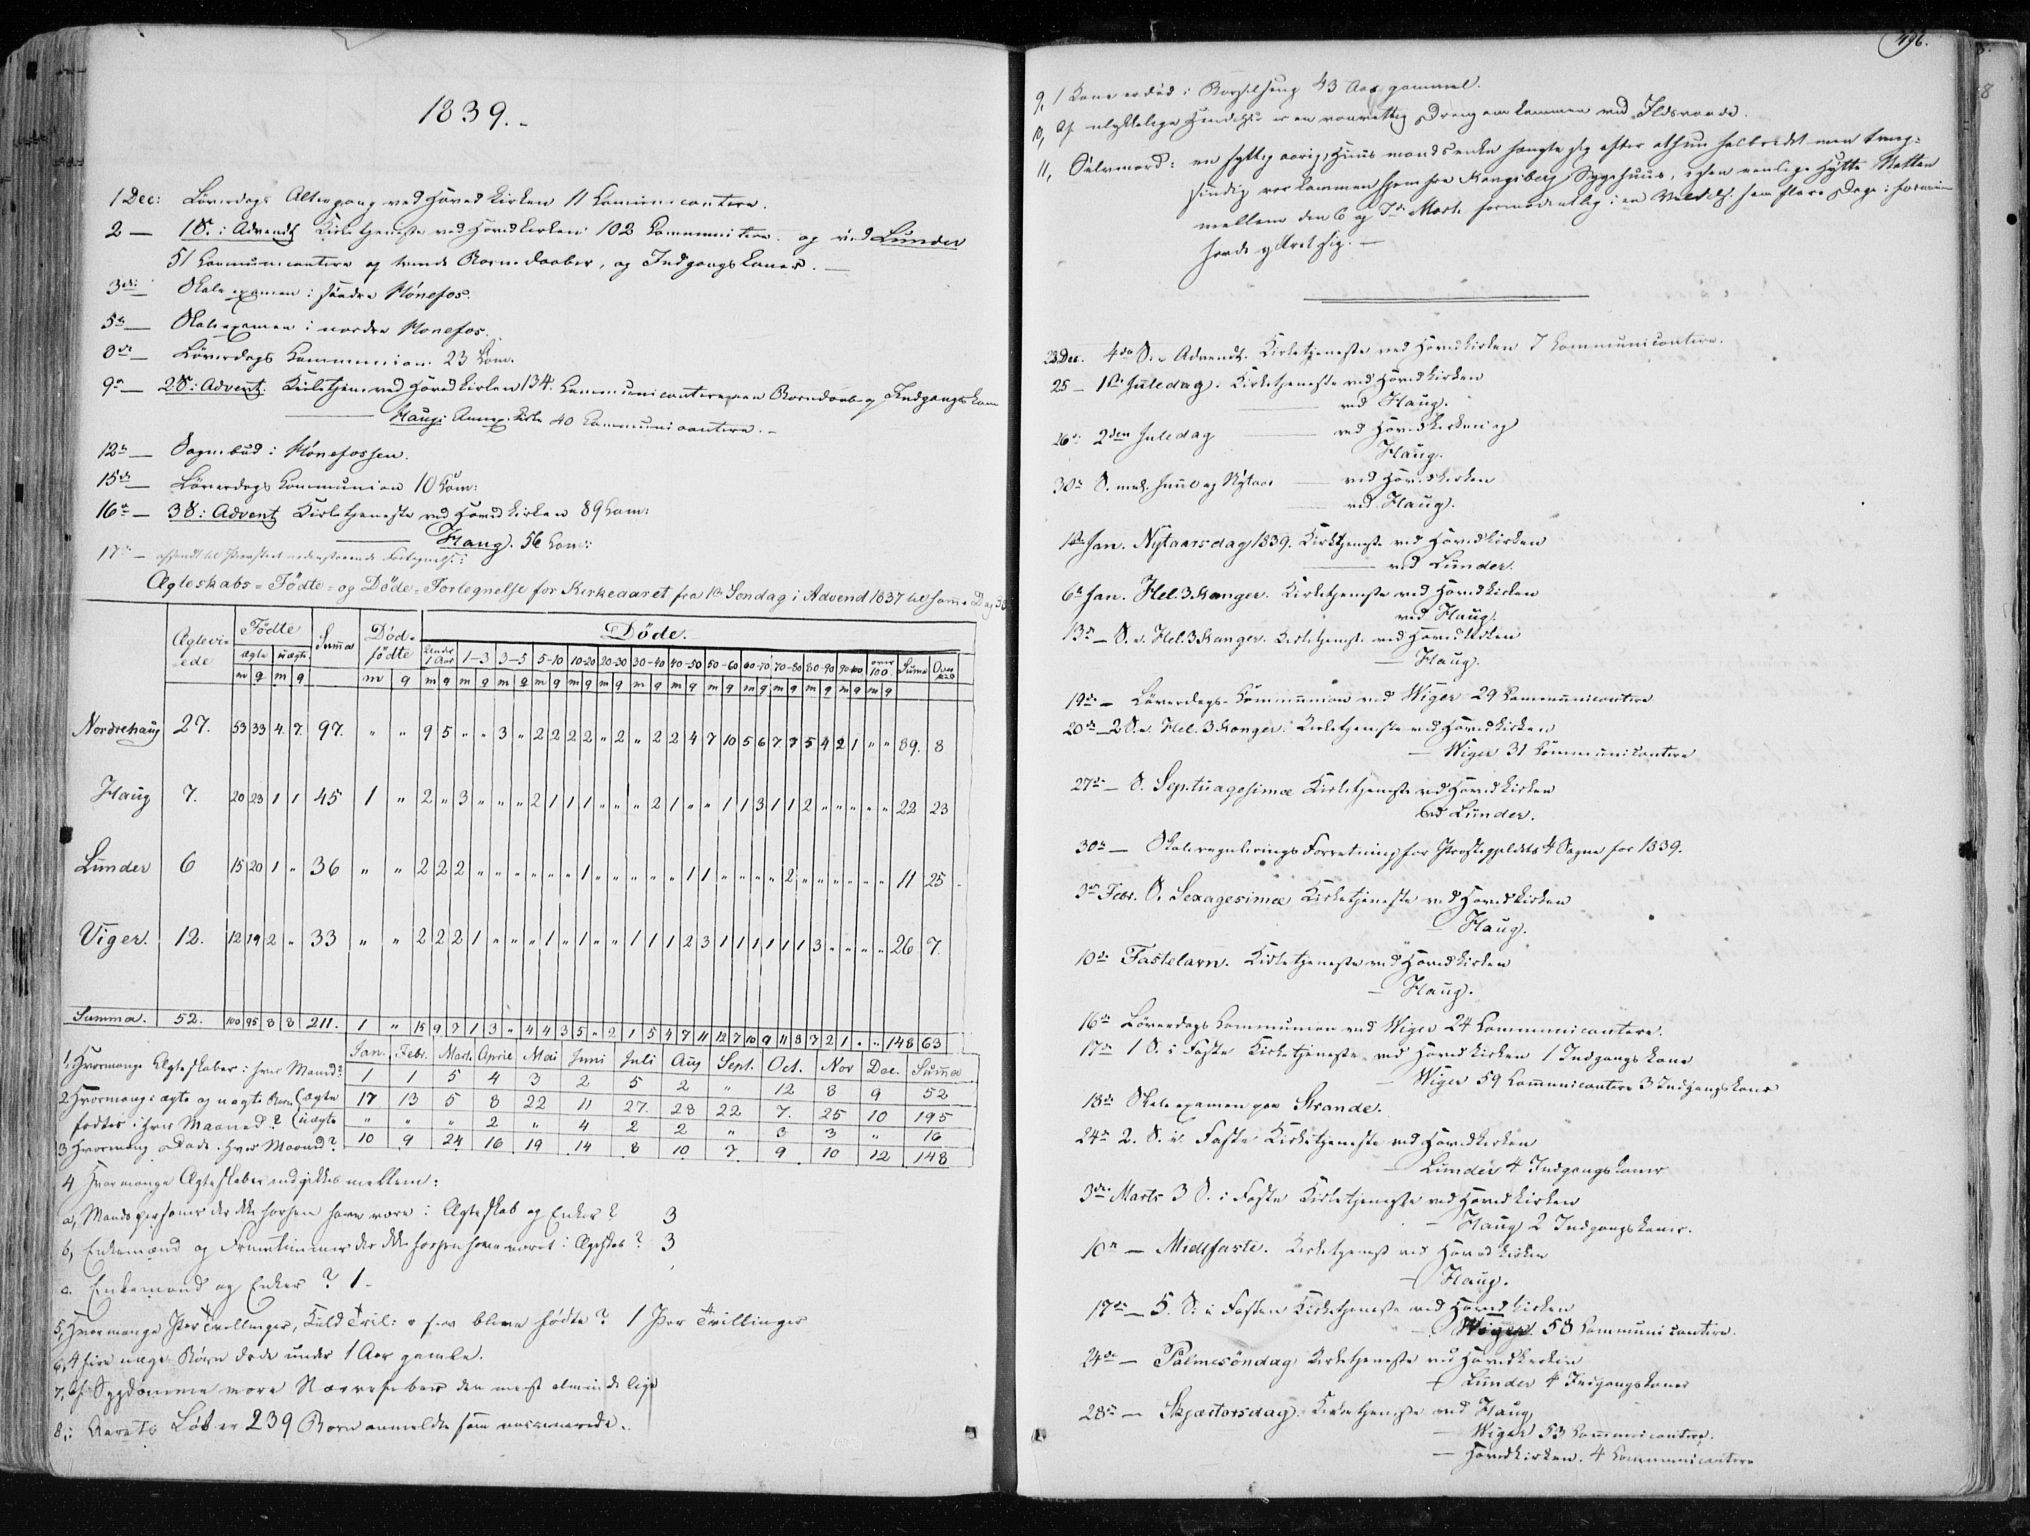 1839.
1 Dec: Løverdags Altergang ved Hovedkirken 11 Communicantere.
2 — 1 S. i Advendt Kirketjeneste ved Hovedkirken 102 Communicantere og ved Lunder
51 Communicantere og Barnedaaber, og Indgangskoner. —
3die Skoleexamen i søndre Hønefos.
5te — Skoleexamen i nordre Hønefos.
8de — Løverdags Communion 23 Com.
9de — 2 S: Advent: Kirketjen: ved Hovedkirken 134 Communicantere Barnedaab og Indgangskone
Haug: Annex Kirke 40 Communicantere. —
12te — Sognebud i Hønefossen.
15de — Løverdags Communion 10 Com:
16de — 3 S: Advent Kirketjeneste ved Hovedkirken 89 Com:
Haug. 56 Com:
17de — afsendt til Provsten nedenstaaende Fortegnelse:
Ægteskabs- Fødte- og Døde- Fortegnelse for Kirkeaaret fra 1ste Søndag i Advend 1837 til samme Dag 38
Ægtevi- ede | Fødte | Summa | Død- fødte | Døde.
ægte | uægte | under 1 Aar | 1-3 | 3-5 | 5-10 | 10-20 | 20-30 | 30-40 | 40-50 | 50-60 | 60-70 | 70-80 | 80-90 | 90-100 | over 100 | Sum
m q m q m q m q m q m q m q m q m q m q m q m q m q m q m q m q m q
Nordrehaug 27. 53 33 4 7 97. " " 9 5 " " 3 " 2 2 2 2 " 2 " 2 2 4 7 10 5 6 7 7 5 4 2 1 " " 89. 8
Haug 7. 20 23 1 1 45 1 " 2 " 3 " " " 2 1 1 1 " " " 2 1 " " 1 1 3 1 1 2 " " " " " 22 23
Lunder 6 15 20 1 " 36 " " 2 2 2 " " " " " " 1 " " " " " 1 1 " " " " 2 " " " " " " 11 25
Viger. 12. 12 19 2 " 33 " " 2 2 2 1 " " " 1 " 1 " " 1 1 1 2 3 1 1 1 1 1 1 3 " " " " 26 7.
Summa. 52. 100 95 8 8 211. 1 " 15 9 7 1 3 " 4 4 3 5 " 2 1 5 4 7 11 12 7 10 9 11 8 7 2 1 " " 148 63
Jan. Febr. Mart. April Mai Juni Juli Aug Sept. Oct. Nov Dec. Summa
1, Hvormange Ægteskaber i hver Maaned? 1 1 5 4 3 2 5 2 " 12 8 9 52
2 Hvormange ægte og uægte Børn (ægte 17 13 5 8 22 11 27. 28 22 7. 25 10 195
fødtes i hver Maaned? (uægte " " " 2 " 4 2 2 " 3 3 " 16
3 Hvormange Døde i hver Maaned? 10 9 24 16 19 14 8 10 7 9 10 12 148
4 Hvormange Ægteskaber indgikkes mellem:
a, Mandspersoner der ikke forhen have være i Ægteskab og Enker? 3
b, Enkemænd og Fruentimmer der ikke forhen have været i Ægteskab? 3
c. Enkemænd og Enker? 1 -
5, Hvormange Par Tvillinger, Kuld Tril: o s. v. bleve fødte? 1 Par Tvillinger
6, 4 fire uægte Børn døde under 1 Aar gamle.
7, Af Sygdomme vare Nervefeber den mest almindelige
8,: Aarets Løb er 239 Børn anmeldte som vaccinerede.
496.
9, 1 Kone er død i Barselseng 43 Aar gammel.
10, Af ulykkelige Hændelser er en vanvittig Dreng omkommen ved Ildsvaade.
11, Selvmord: en syttig aarig Huusmandsenke hængte sig efter at hun halbredet men tung-
sindig var kommen hjem fra Kongsberg Sygehuus, i sen Hytte Natten
mellem den 6 og 7de Marts formodentlig i en som flere Dage i
havde yttret sig. —
23 Dec. 4de S. i Advendt. Kirketjeneste ved Hovedkirken 7 Communicantere.
25 — 1ste Juledag. Kirketjeneste ved Hovedkirken
ved Haug.
26: 2den Juledag — ved Hovedkirken og
Haug.
30te S. mel. Juul og Nytaar — ved Hovedkirken
ved Haug.
1ste Jan. Nytaarsdag 1839. Kirketjeneste ved Hovedkirken
— ved Lunder.
6te Jan. Hel. 3 Konger. Kirketjeneste ved Hovedkirken
ved Haug.
13de — S. e. Hel. 3 Konger. Kirketjeneste ved Hovedkirken
— Haug.
19de — Løverdags-Communion ved Wiger 29 Communicantere
20de — 2 S. e. Hel. 3 Konger. Kirketjeneste ved Hovedkirken
— Wiger 31 Communicantere
27de — S. Septuagesimæ Kirketjeneste ved Hovedkirken
ved Lunder.
30te — Skoleregulerings Forretning for Præstegjeldets 4 Sogne for 1839.
3die Febr. S. Sexagesimæ Kirketjeneste ved Hovedkirken
— Haug.
10de Fastelavn. Kirketjeneste ved Hovedkirken
— Haug.
16de Løverdags Communion ved Wiger 24 Communicantere.
17de 1 S. i Faste Kirketjeneste ved Hovedkirken 1 Indgangskone
— Wiger 59 Communicantere 3 Indgangskoner
18de Skoleexamen paa Strande.
24de 2. S. i. Faste Kirketjeneste ved Hovedkirken
— Lunder 4 Indgangskoner
3die Marts 3 S. i Faste Kirketjeneste ved Hovedkirken
— Haug 2 Indgangskoner.
10de — Midfaste. Kirketjenest ved Hovedkirken
— Haug.
17de — 5. S. i Fasten Kirketjeneste ved Hovedkirken
— Wiger. 58 Communicantere.
24de — Palmesøndag Kirketjeneste ved Hovedkirken
— Lunder 4 Indgangskoner
28de — Skjærtorsdag. Kirketjeneste ved Haug
— Wiger 53 Communicantere.
— Hovedkirken. 4 Communicantere